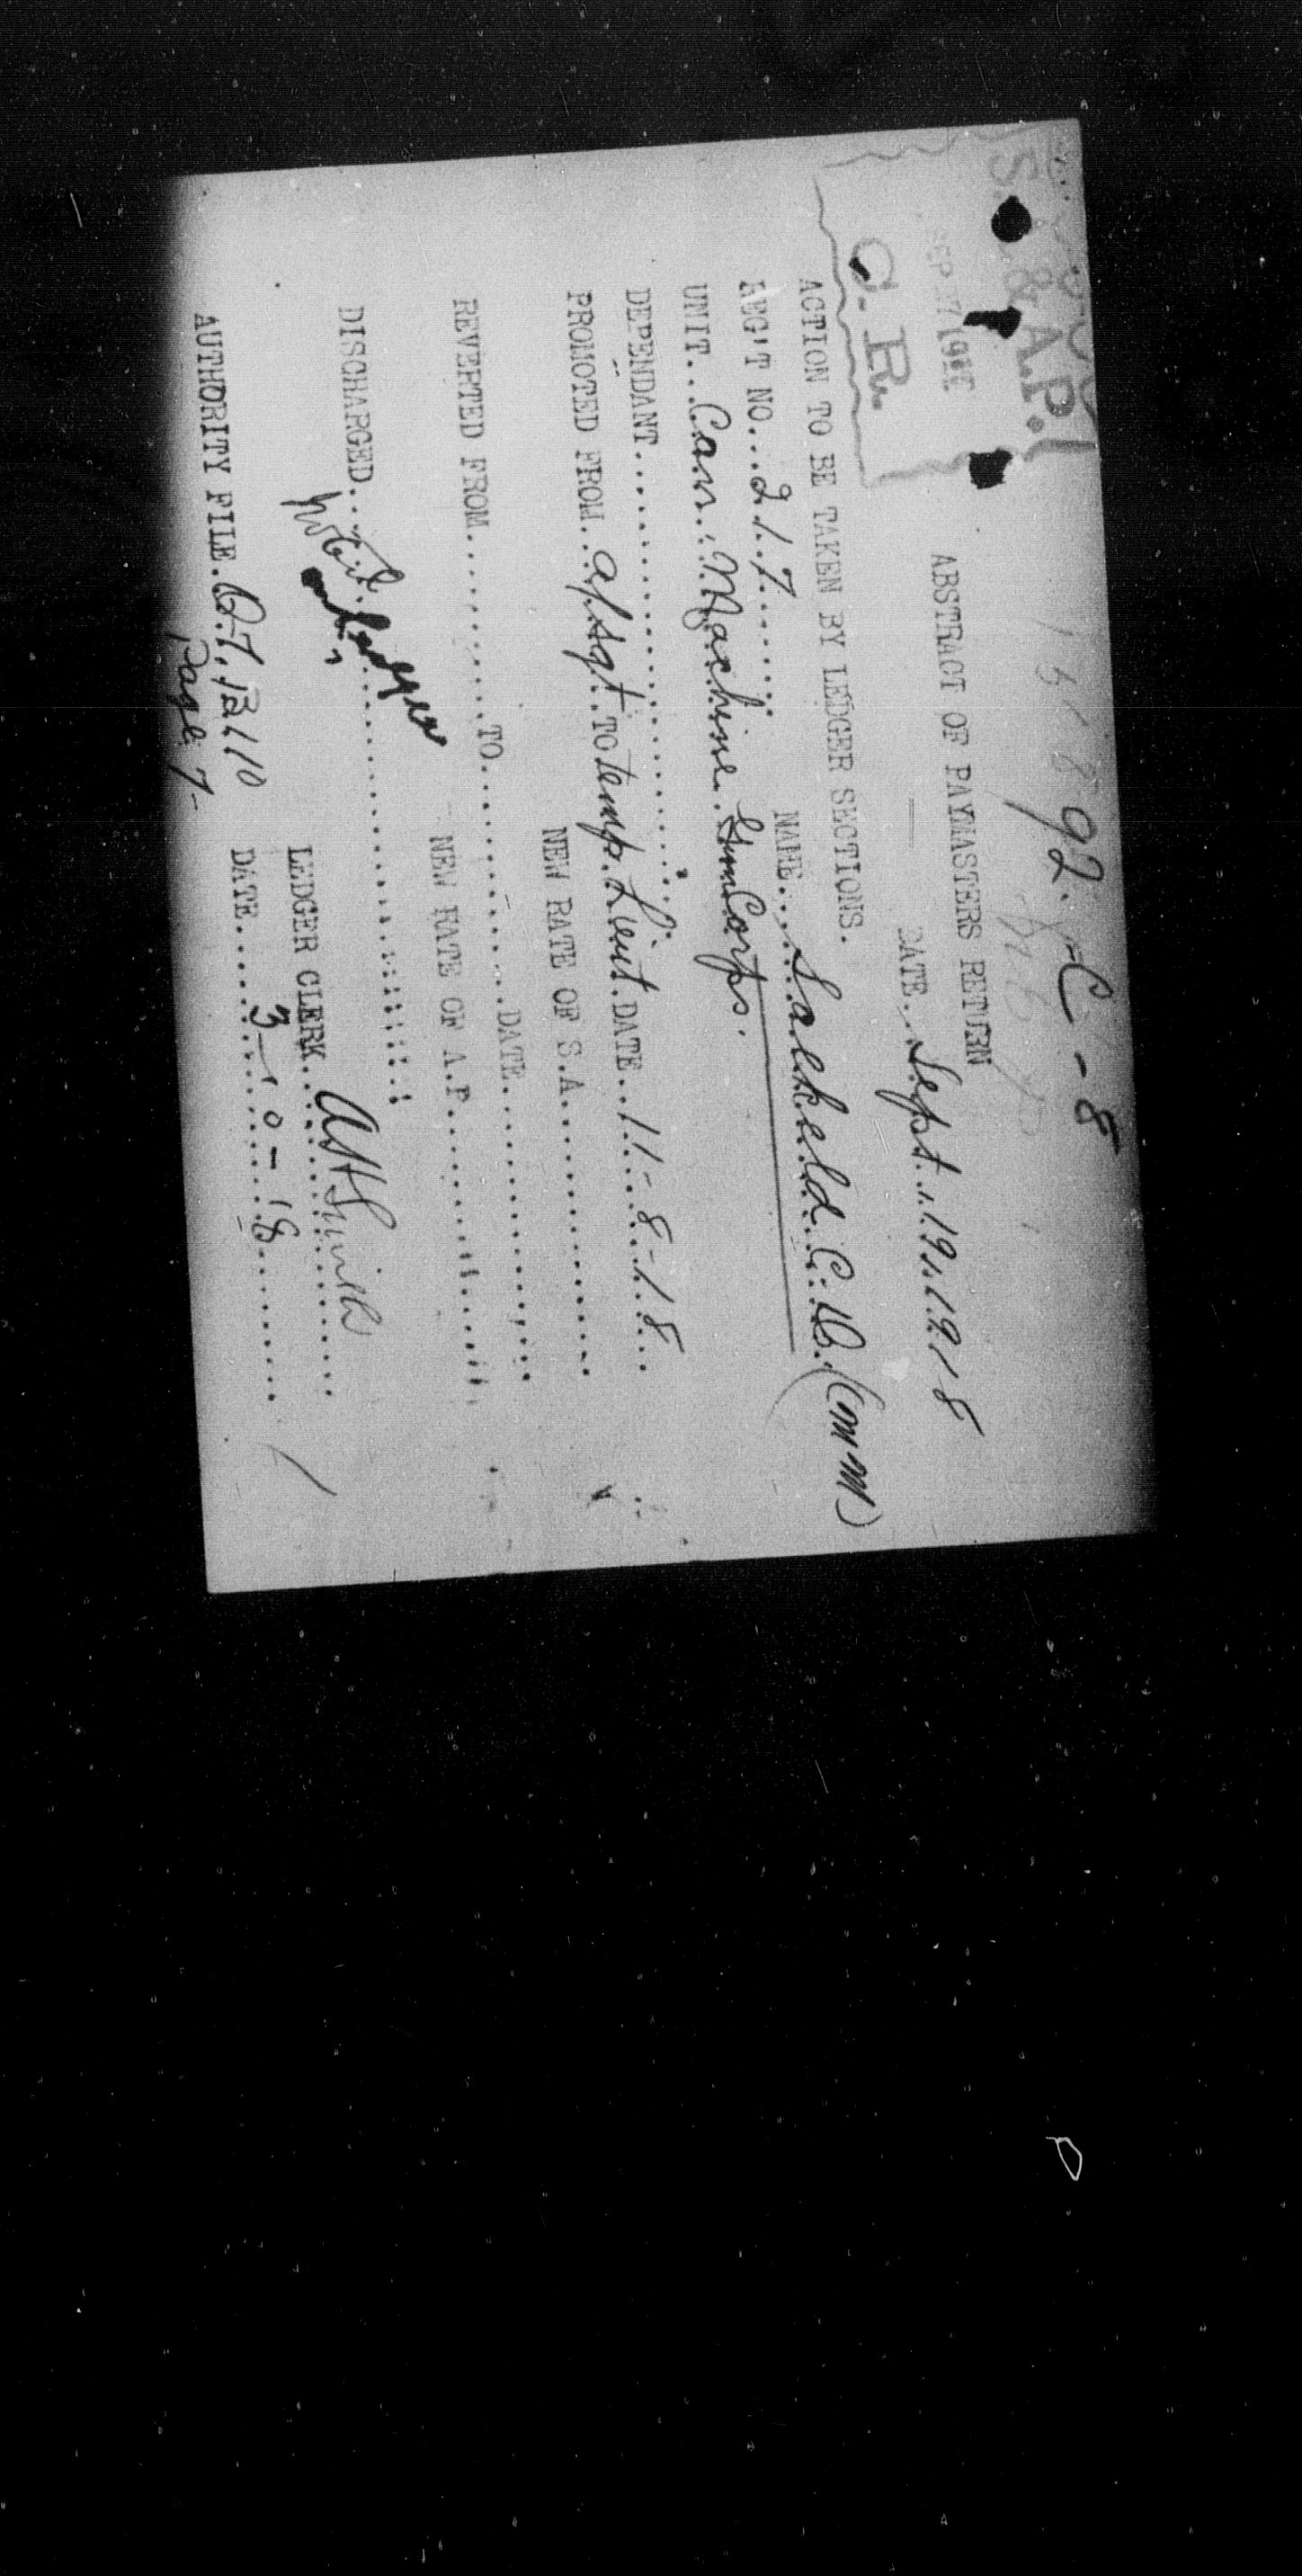 92-C-8
S. & A.P.
SEP 17 191
C. R.
ABSTRACT OF PAYMASTERS RETURN
DATE...Sept..19..1918
ACTION TO BE TAKEN BY LEDGER SECTIONS.
REG'T NO...217....... NAME...Salkeld C.W. (MM)
UNIT...Can. Machine Gun Corps.
DEPENDANT..............................
PROMOTED FROM..a/sgt..TO temp. Lieut DATE..11-8-18...
NEW RATE OF S.A....................
REVERTED FROM.............TO................DATE....................
NEW RATE OF A.P....................
DISCHARGED..............................
LEDGER CLERK..
AUTHORITY FILE. DATE....
Page 7